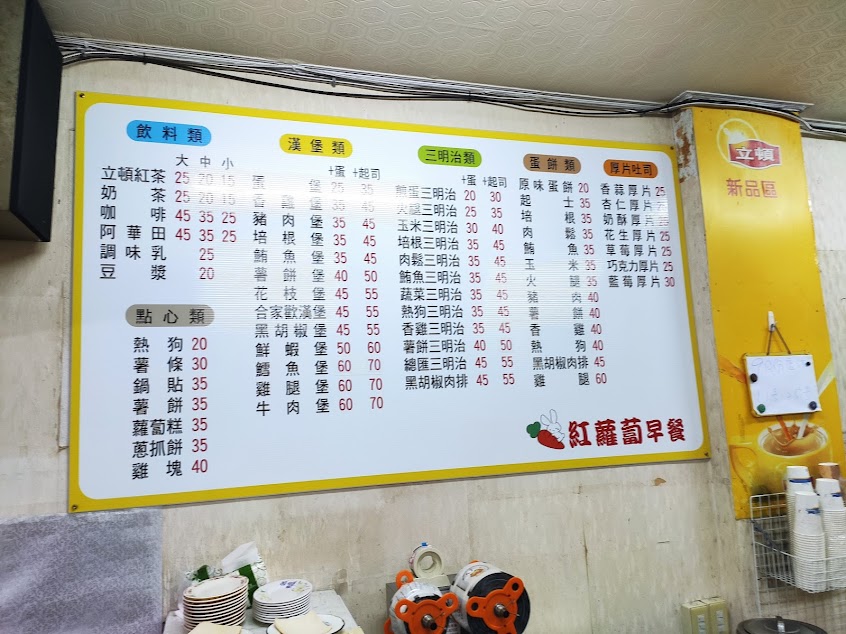 飲料類
大 中 小
立頓紅茶 25 20 15
奶茶 25 20 15
咖啡 45 35 25
阿華田 45 35 25
調味乳 25
豆漿 20
點心類
熱狗 20
薯條 30
鍋貼 35
薯餅 35
蘿蔔糕 35
蔥抓餅 35
雞塊 40
漢堡類
+蛋 +起司
蛋堡 25 35
香雞堡 35 45
豬肉堡 35 45
培根堡 35 45
鮪魚堡 35 45
薯餅堡 40 50
花枝堡 45 55
合家歡漢堡 45 55
黑胡椒堡 45 55
鮮蝦堡 50 60
鱈魚堡 60 70
雞腿堡 60 70
牛肉堡 60 70
三明治類
+蛋 +起司
煎蛋三明治 20 30
火腿三明治 25 35
玉米三明治 30 40
培根三明治 35 45
肉鬆三明治 35 45
鮪魚三明治 35 45
蔬菜三明治 35 45
熱狗三明治 35 45
香雞三明治 35 45
薯餅三明治 40 50
總匯三明治 45 55
黑胡椒肉排 45 55
蛋餅類
原味蛋餅 20
起士 35
培根 35
肉鬆 35
鮪魚 35
玉米 35
火腿 35
豬肉 40
薯餅 40
香雞 40
熱狗 40
黑胡椒肉排 45
雞腿 60
厚片吐司
香蒜厚片 25
杏仁厚片
奶酥厚片 25
花生厚片 25
草莓厚片 25
巧克力厚片 25
藍莓厚片 30
紅蘿蔔早餐
立頓
新品區